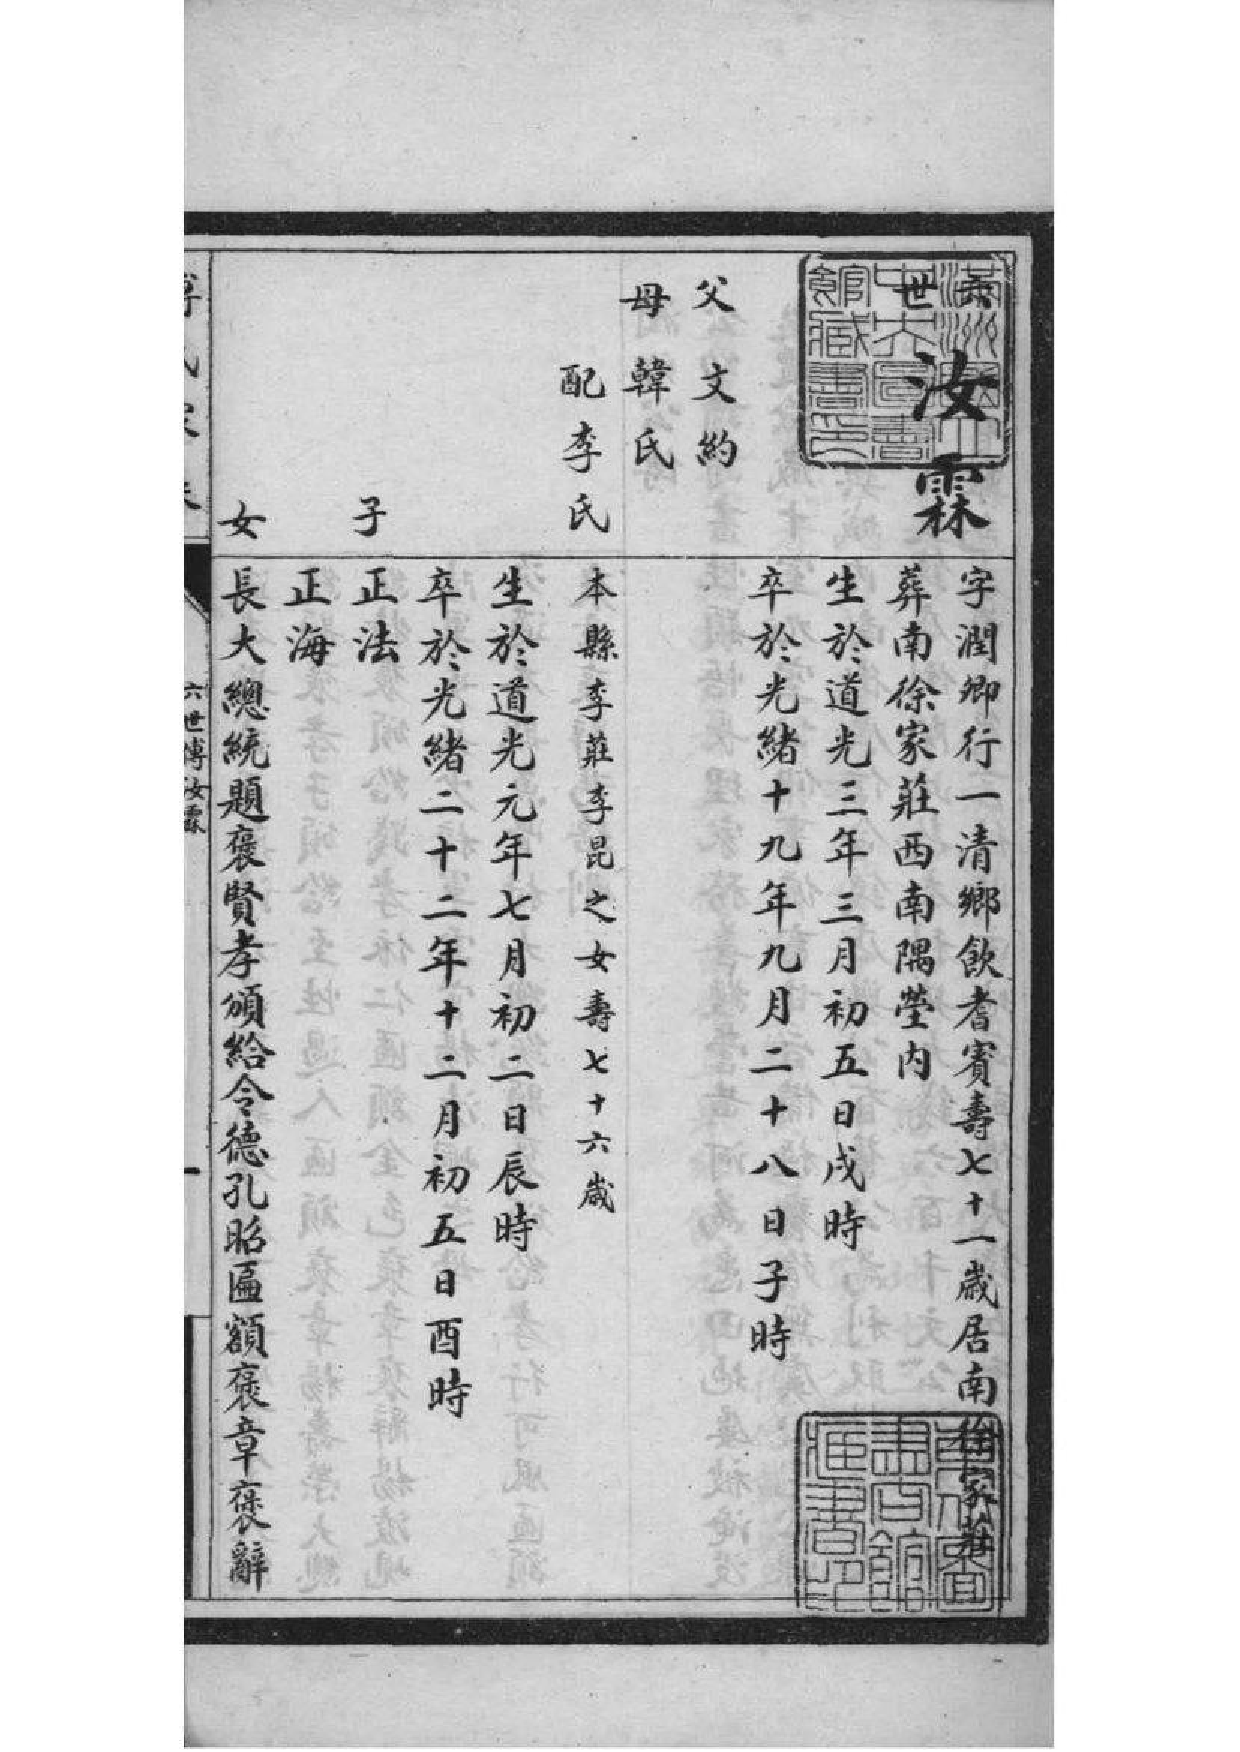 六世
汝霖
字潤卿行一清鄉飲耆賓壽七十一歲居南徐家莊
葬南徐家莊西南隅塋内
生於道光三年三月初五日戌時
卒於光緒十九年九月二十八日子時
父文約
母韓氏
配李氏
本縣李莊李昆之女壽七十六歲
生於道光元年七月初二日辰時
卒於光緒二十二年十二月初五日酉時
子
正法
正海
女
長大總統題褒賢孝頒給令德孔昭匾額褒章褒辭
六世傳汝霖
一